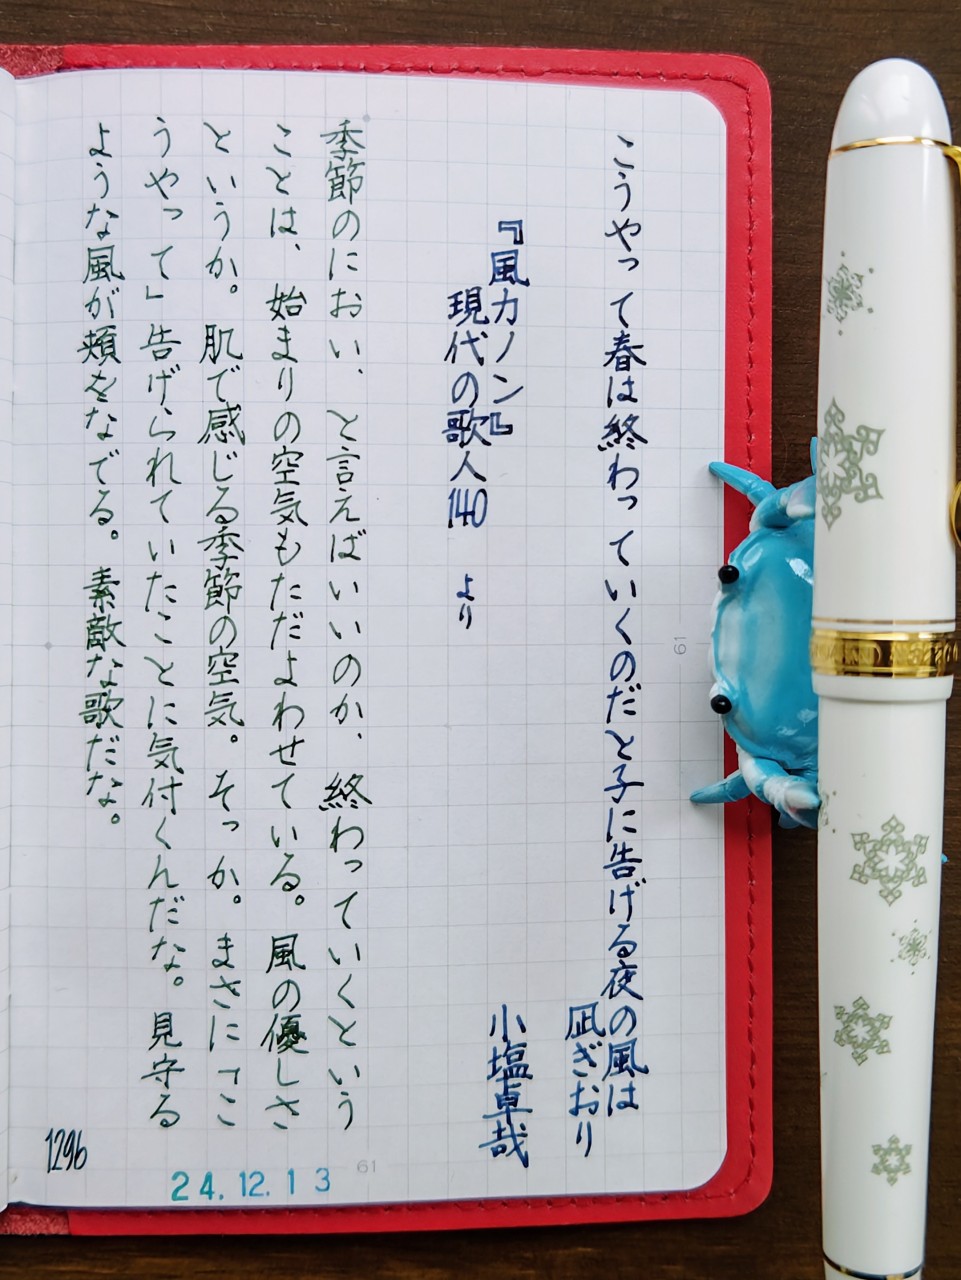 こうやって春は終わっていくのだと子に告げる夜の風は
凪ぎおり
小塩卓哉
『風カノン』
現代の歌人140 より
季節のにおい、と言えばいいのか、終わっていくという
ことは、始まりの空気もただよわせている。風の優しさ
というか。肌で感じる季節の空気。そっか。まさに「こ
うやって」告げられていたことに気付くんだな。見守る
ような風が頬をなでる。素敵な歌だな。
1296
24.12.13
61
61